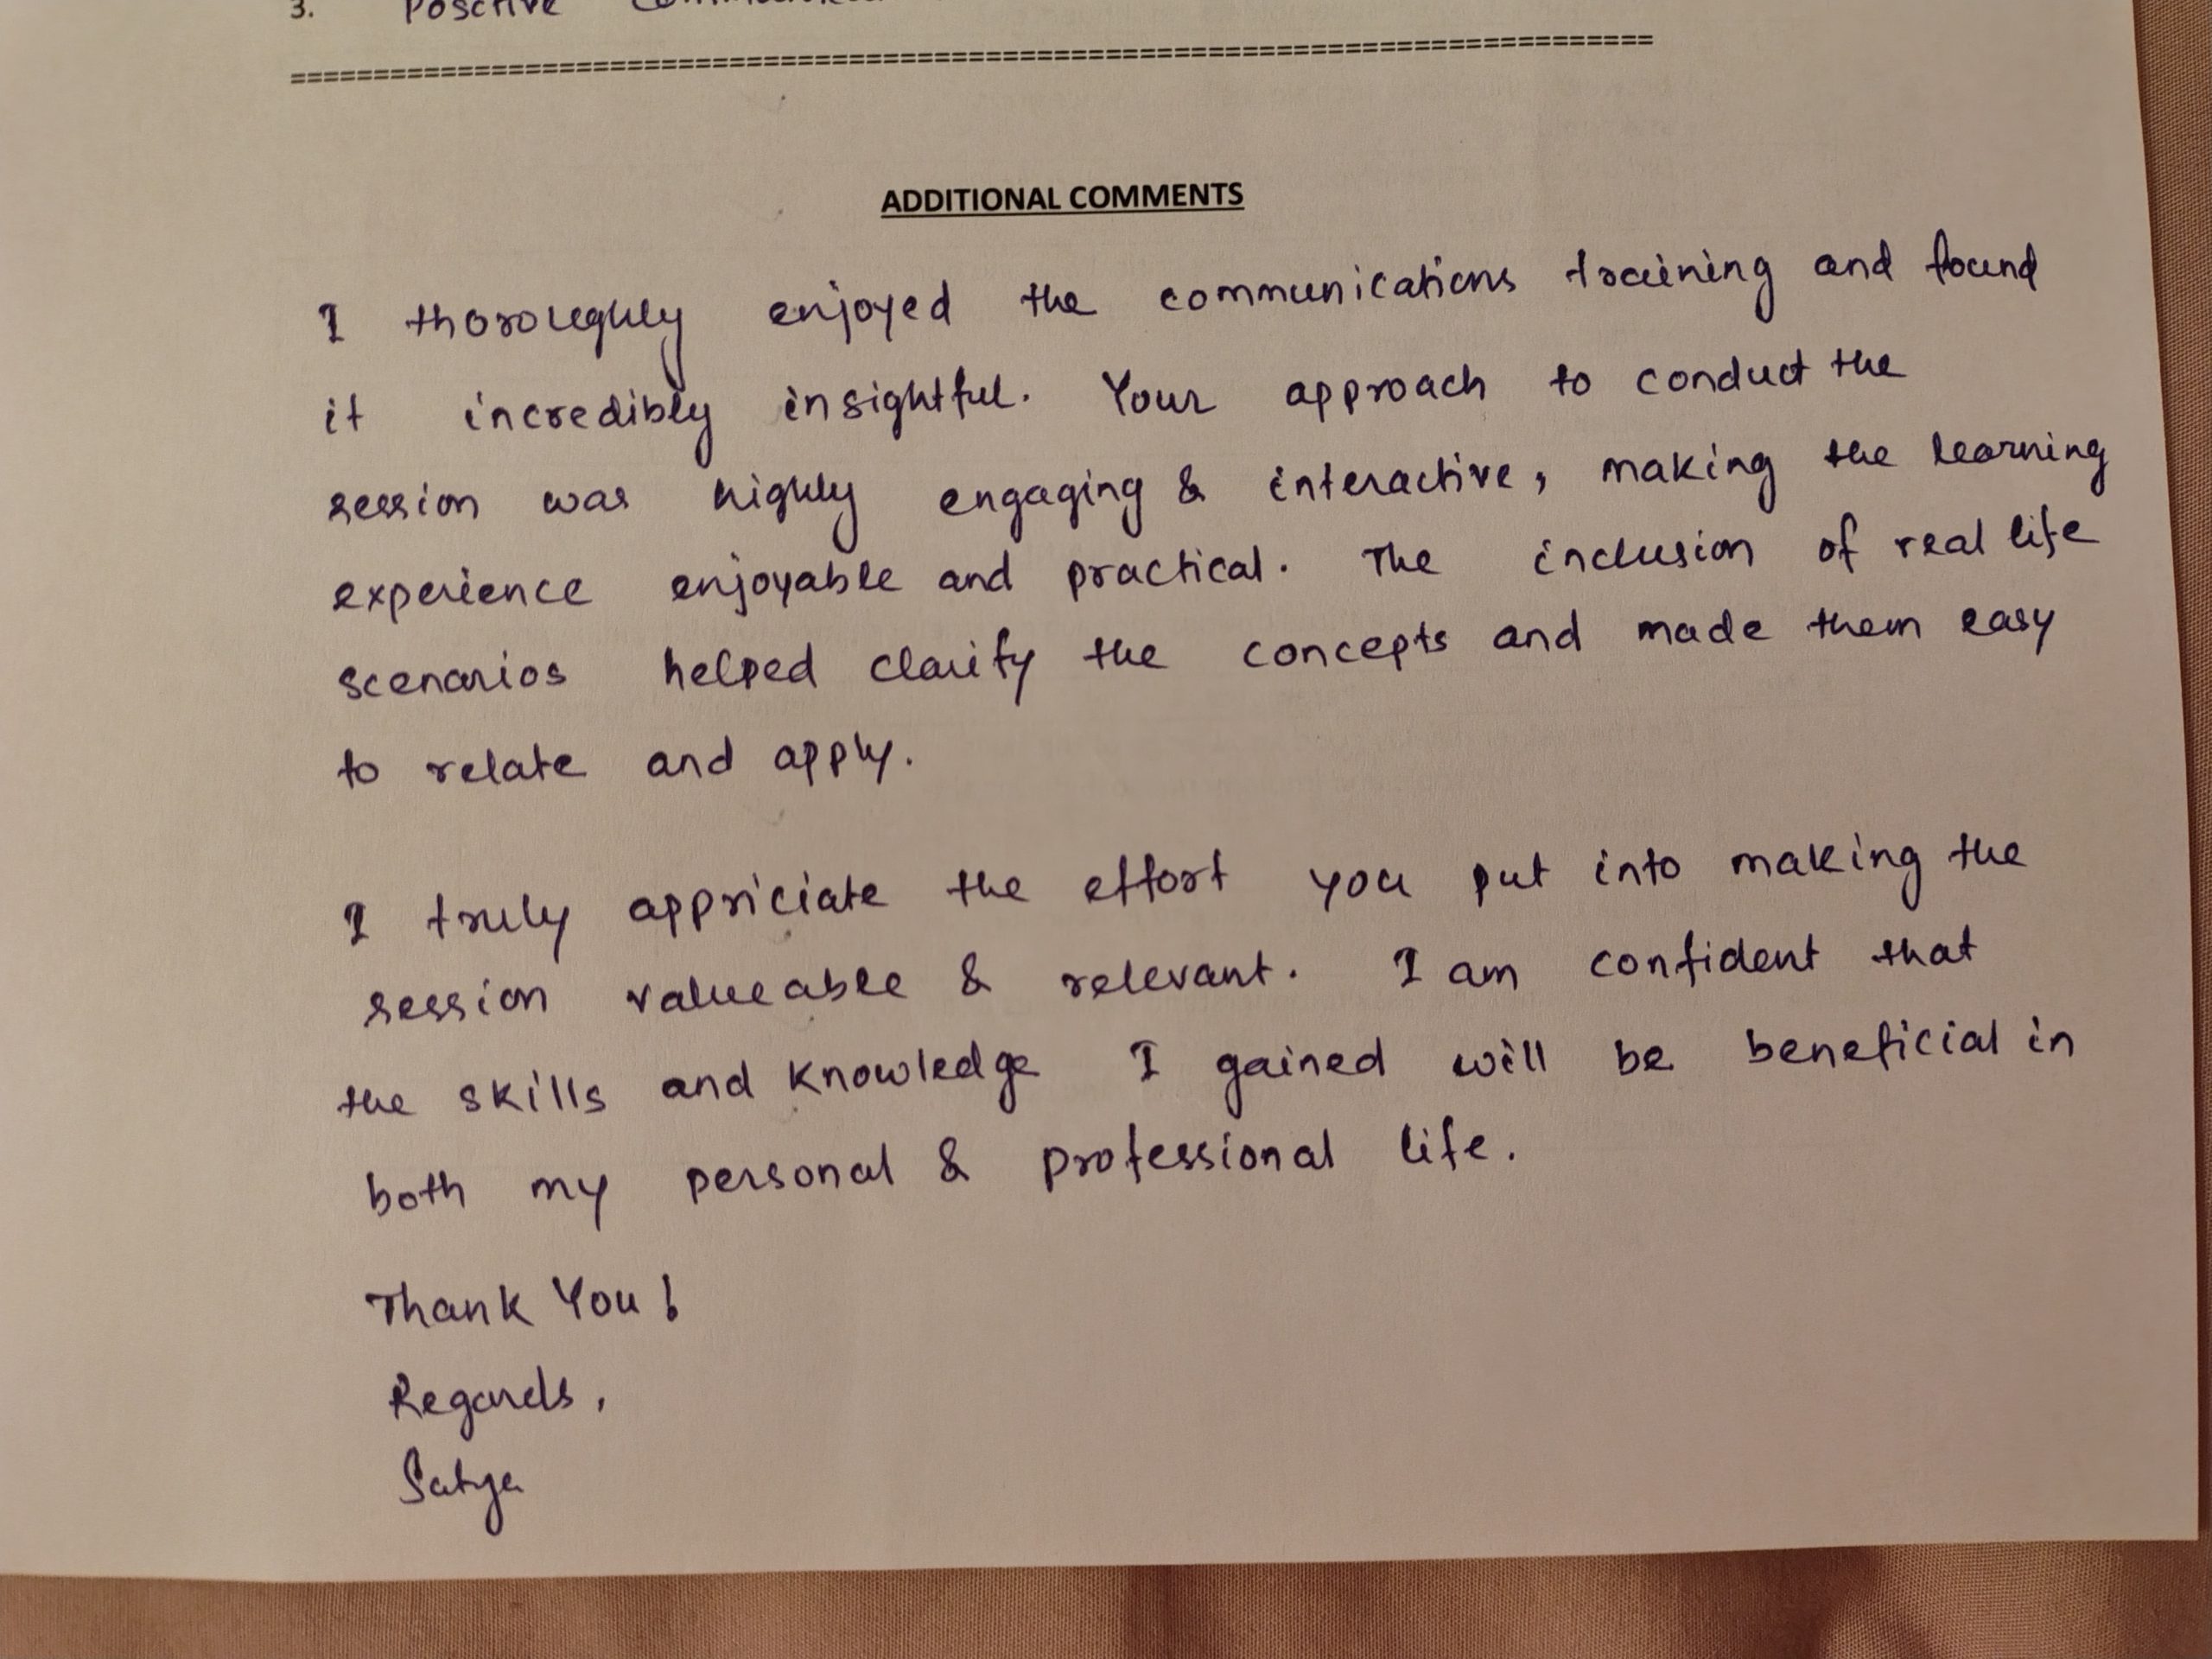 3. Positive
================================================================================
ADDITIONAL COMMENTS
I thoroughly enjoyed the communications training and found
it incredibly insightful. Your approach to conduct the
session was highly engaging & interactive, making the learning
experience enjoyable and practical. The inclusion of real life
scenarios helped clarify the concepts and made them easy
to relate and apply.
I truly appriciate the effort you put into making the
session valueable & relevant. I am confident that
the skills and knowledge I gained will be beneficial in
both my personal & professional life.
Thank You!
Regards,
Satya